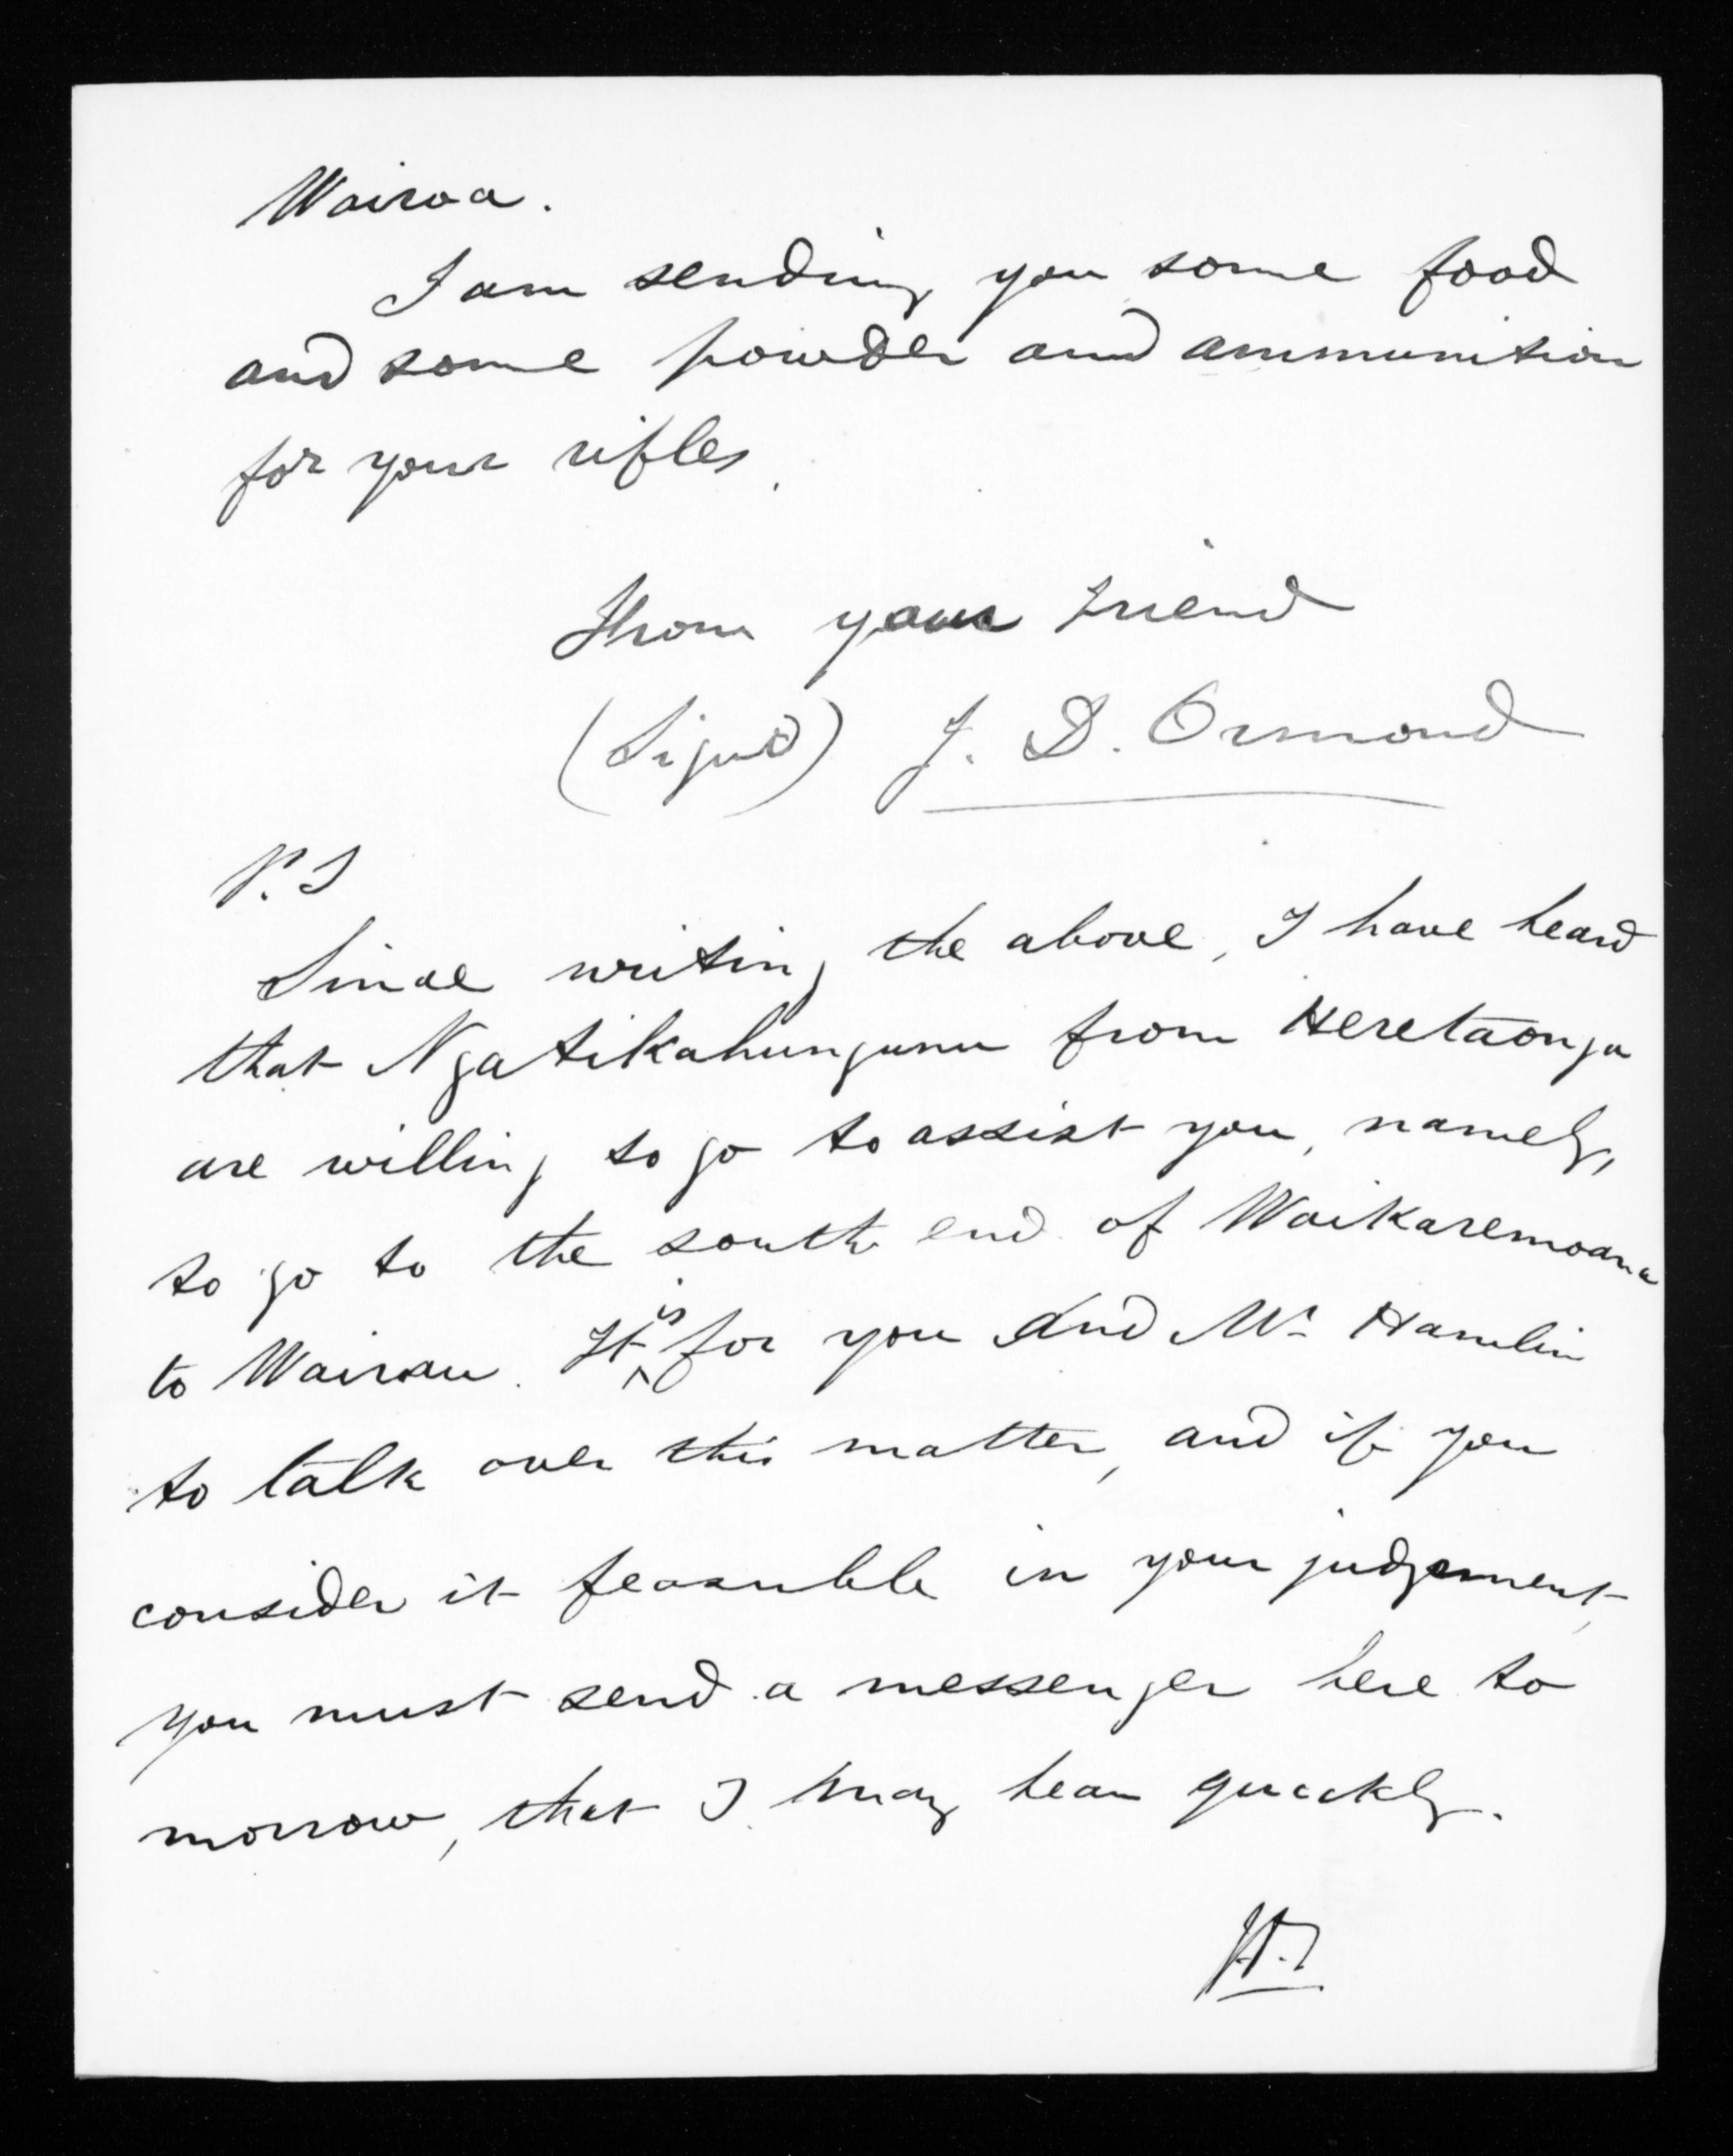 Wairoa.
I am sending you some food
and some powder and ammunition
for your rifles.
From your friend
(Signed) J. D. Ormond
P.S
Since writing the above, I have heard
that Ngatikahungunu from Heretaonga
are willing to go to assist you, namely,
to go to the south end of Waikaremoana
to Wairau. It is for you and Mr Hamlin
to talk over this matter, and if you
consider it feasuble in your judgement,
you must send a messenger here to
morrow, that I may hear quickly.